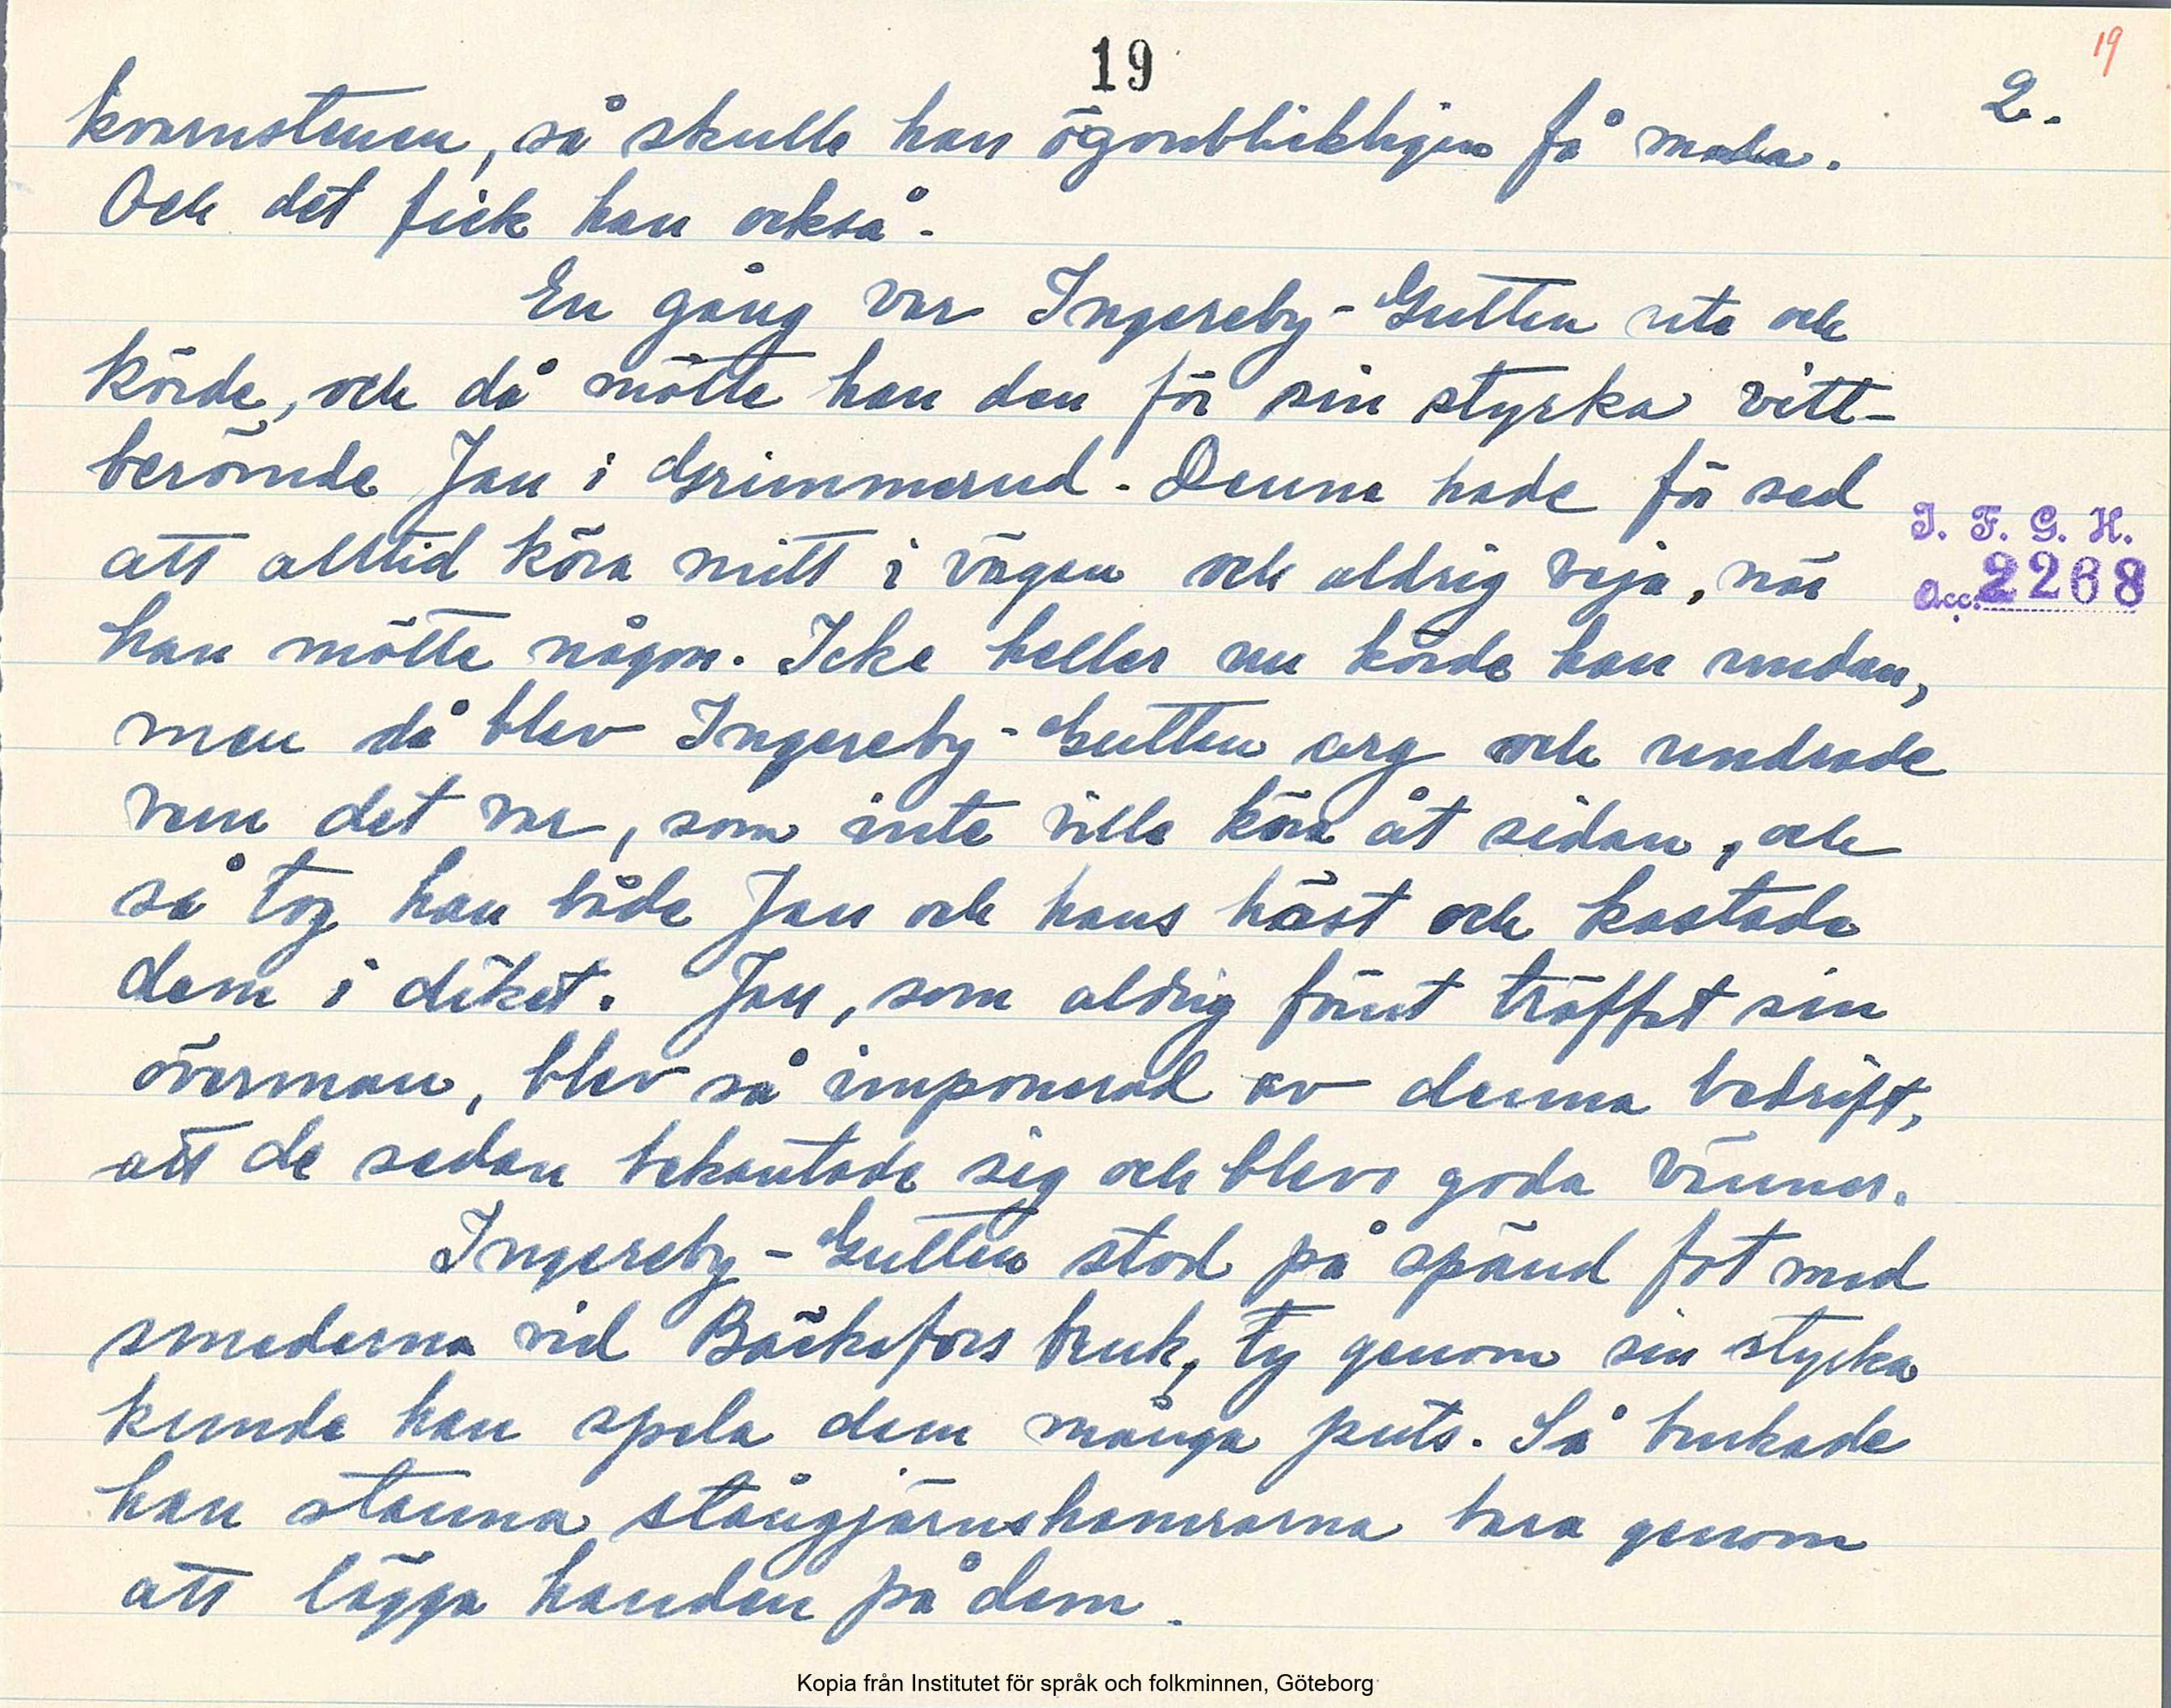 19
19
2.
kvarnstenen, så skulle han ögonblickligen få mala.
Och det fick han också.
En gång var Ingereby-Gutten ute och
körde, och då mötte han den för sin styrka vitt-
berömde Jan i Grimmerud. Denne hade för sed
att alltid köra mitt i vägen och aldrig väja, när
I. F. G. H.
Acc. 2268
han mötte någon. Icke heller nu körde han undan,
men då blev Ingereby-Gutten arg och undrade
vem det var, som inte ville köra åt sidan, och
så tog han både Jan och hans häst och kastade
dem i diket. Jan, som aldrig förut träffat sin
överman, blev så imponerad av denna bedrift,
att de sedan bekantade sig och blevo goda vänner.
Ingereby-Gutten stod på spänd fot med
smederna vid Bäckefors bruk, ty genom sin styrka
kunde han spela dem många puts. Så brukade
han stanna stångjärnshamrarna bara genom
att lägga handen på dem.
Kopia från Institutet för språk och folkminnen, Göteborg